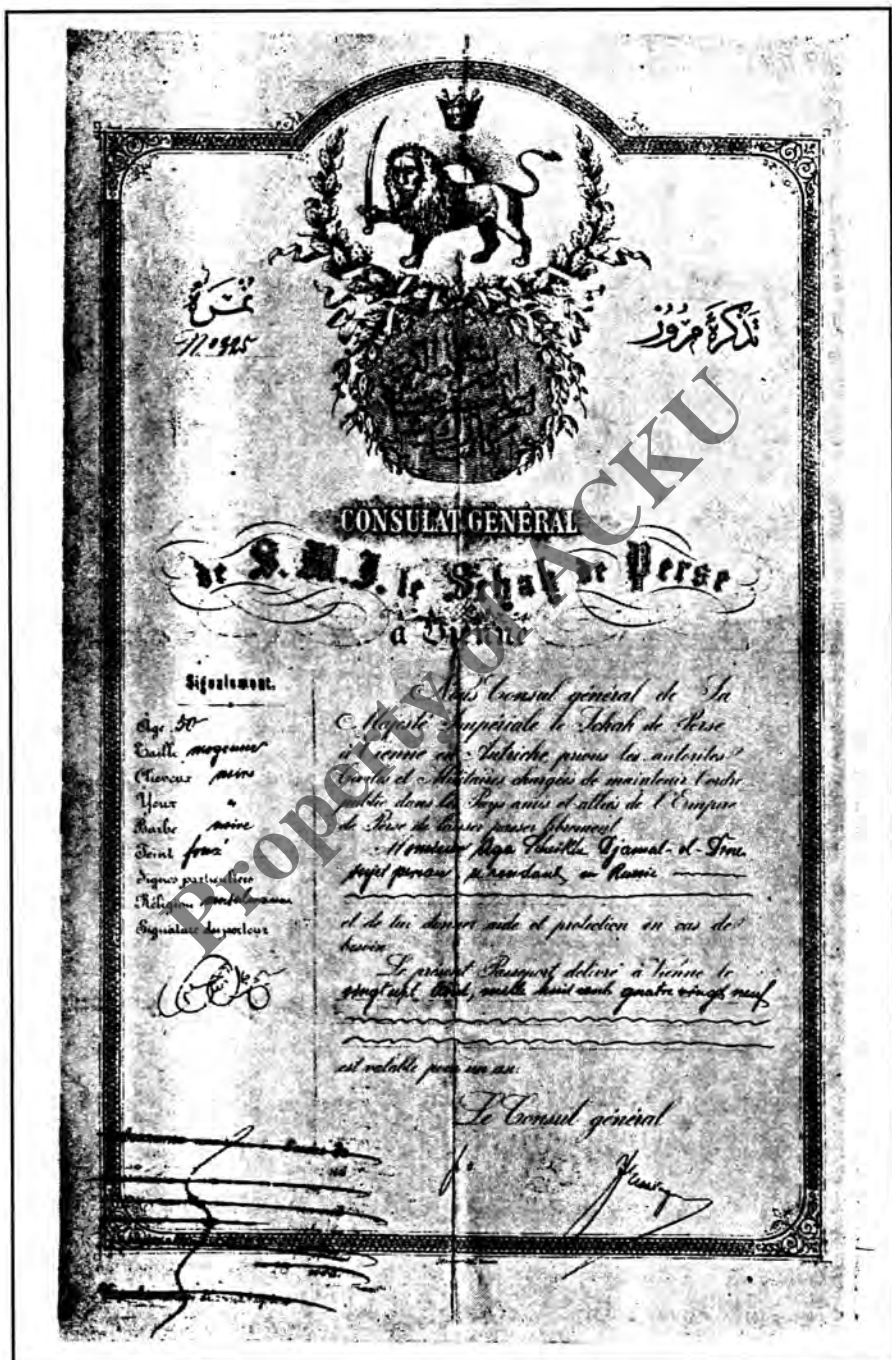 نمرة
No 925
تذكرة مرور
CONSULAT GENERAL
de S. M. I. le Schah de Perse
à Vienne
Signalement.
Age 50
Taille moyenne
Cheveux noirs
Yeux "
Barbe noire
Teint foncé
Signes particuliers
Réligion musulmane
Signature du porteur
Nous Consul général de Sa
Majesté Impériale le Schah de Perse
à Vienne en Autriche prions les autorités
Civiles et Militaires chargées de maintenir l'ordre
public dans les Pays amis et alliés de l'Empire
de Perse de laisser passer librement
Monsieur Aga Djamal-el-Dine
sujet persan se rendant en Russie
et de lui donner aide et protection en cas de
besoin
Le présent Passeport délivré à Vienne le
vingt sept mille huit cent quatre vingt neuf
est valable pour un an.
Le Consul général
Property of ACKU